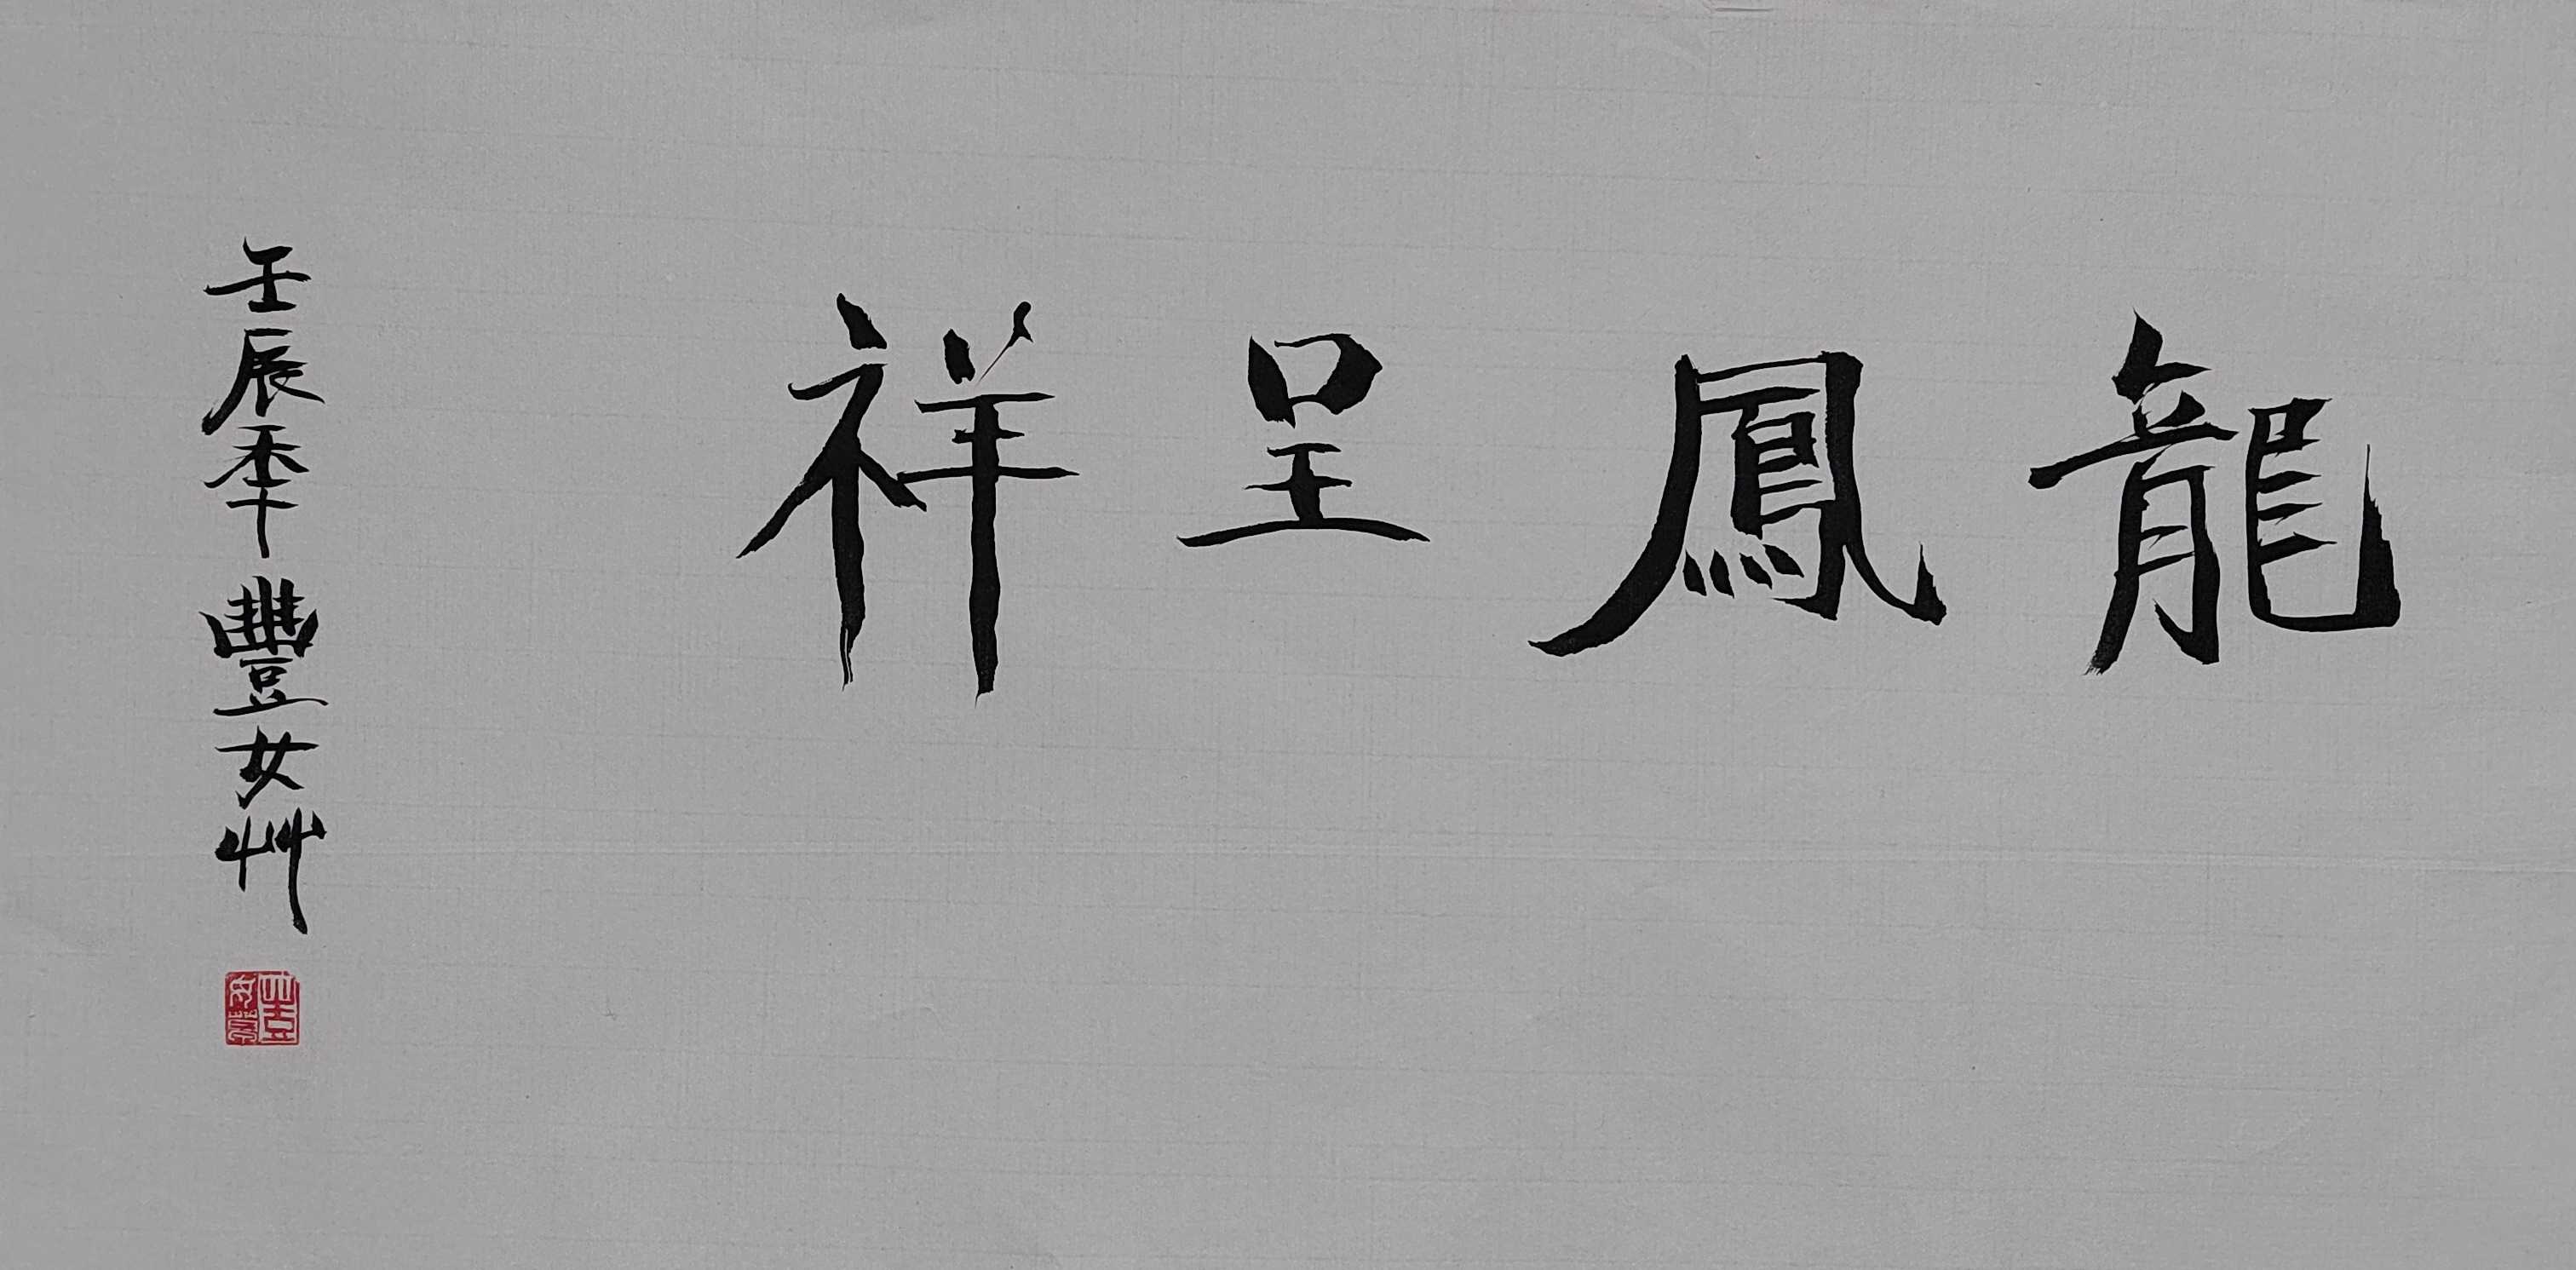 龍鳳呈祥
壬辰年豐女艸